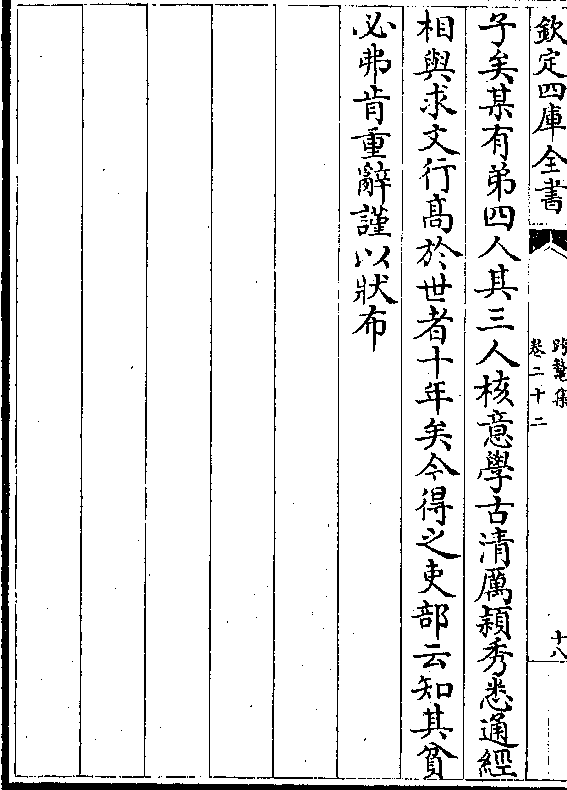 欽定四庫全書
跨鼇集
卷二十二
十八
子矣某有弟四人其三人核意學古清厲穎秀悉通經
相與求文行高於世者十年矣今得之吏部云知其貧
必弗肯重辭謹以狀布